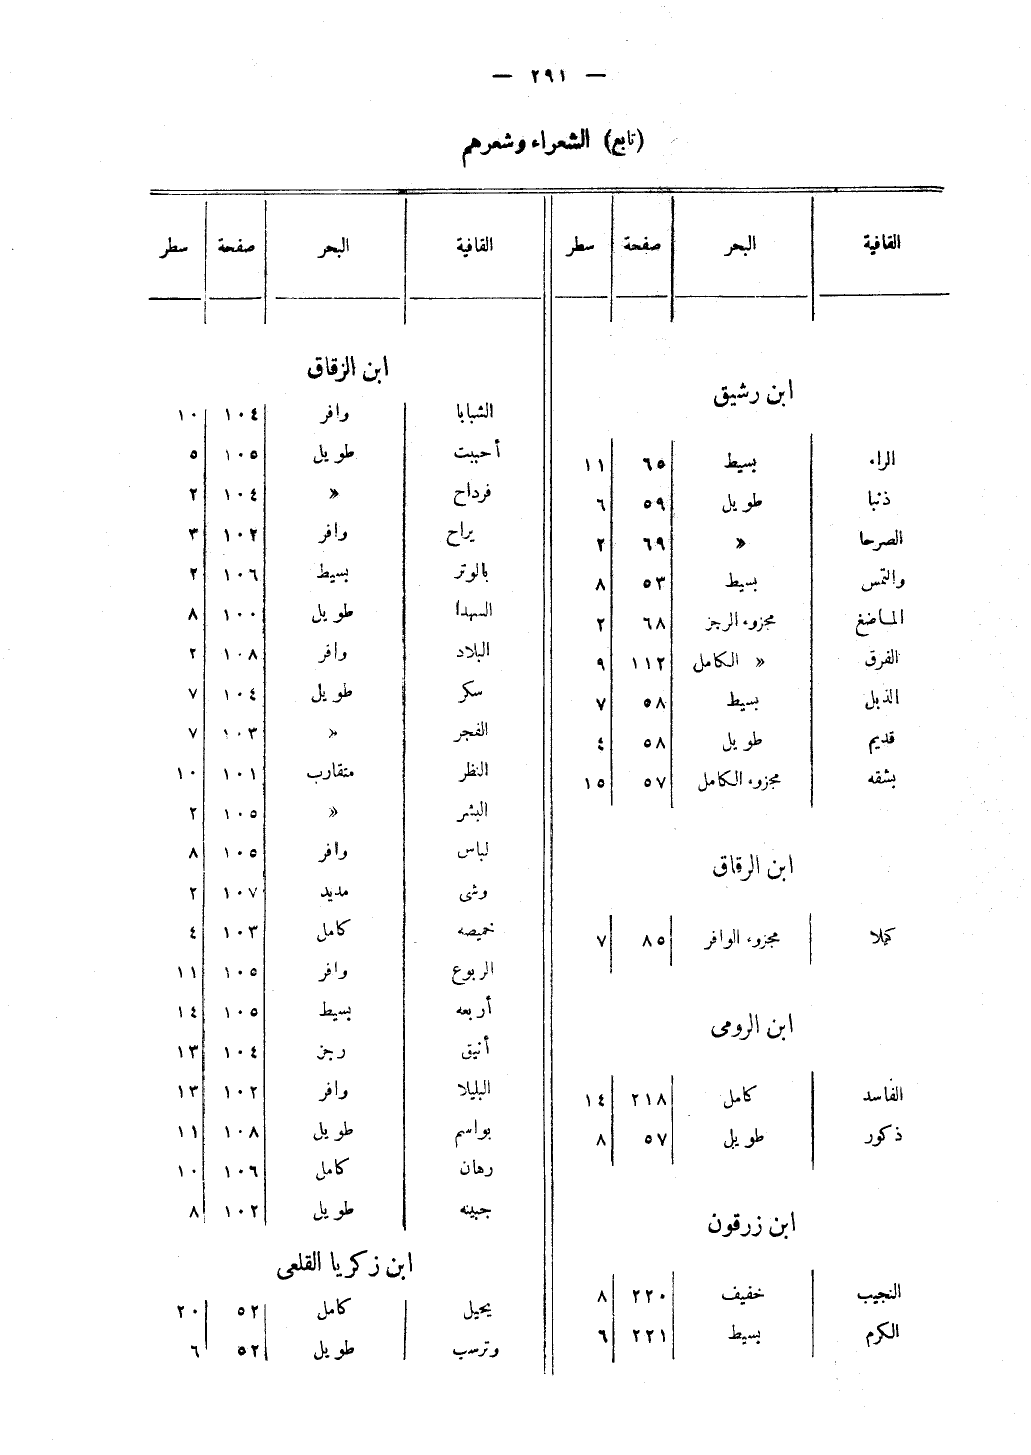 — ٢٩١ —
(تابع) الشعراء وشعرهم
القافية البحر صفحة سطر
ابن رشيق
الراء بسيط ٦٥ ١١
ذئبا طويل ٥٩ ٦
الصرحا » ٦٩ ٢
والتمس بسيط ٥٣ ٨
الماضغ مجزوء الرجز ٦٨ ٢
الفرق » الكامل ١١٢ ٩
الذبل بسيط ٥٨ ٧
قديم طويل ٥٨ ٤
بشقه مجزوء الكامل ٥٧ ١٥
ابن الرقاق
كملا مجزوء الوافر ٨٥ ٧
ابن الرومى
الفاسد كامل ٢١٨ ١٤
ذكور طويل ٥٧ ٨
ابن زرقون
النجيب خفيف ٢٢٠ ٨
الكرم بسيط ٢٢١ ٦
القافية البحر صفحة سطر
ابن الزقاق
الشبابا وافر ١٠٤ ١٠
أحببت طويل ١٠٥ ٥
فرداح » ١٠٤ ٢
يراح وافر ١٠٢ ٣
بالوتر بسيط ١٠٦ ٢
السهدا طويل ١٠٠ ٨
البلاد وافر ١٠٨ ٢
سكر طويل ١٠٤ ٧
الفجر » ١٠٣ ٧
النظر متقارب ١٠١ ١٠
البشر » ١٠٥ ٢
لباس وافر ١٠٥ ٨
وشى مديد ١٠٧ ٢
خميصه كامل ١٠٣ ٤
الربوع وافر ١٠٥ ١١
أربعه بسيط ١٠٥ ١٤
أنيق رجز ١٠٤ ١٣
البليلا وافر ١٠٢ ١٣
بواسم طويل ١٠٨ ١١
رهان كامل ١٠٦ ١٠
جبينه طويل ١٠٢ ٨
ابن زكريا القلعى
يحيل كامل ٥٢ ٢٠
وترسب طويل ٥٢ ٦